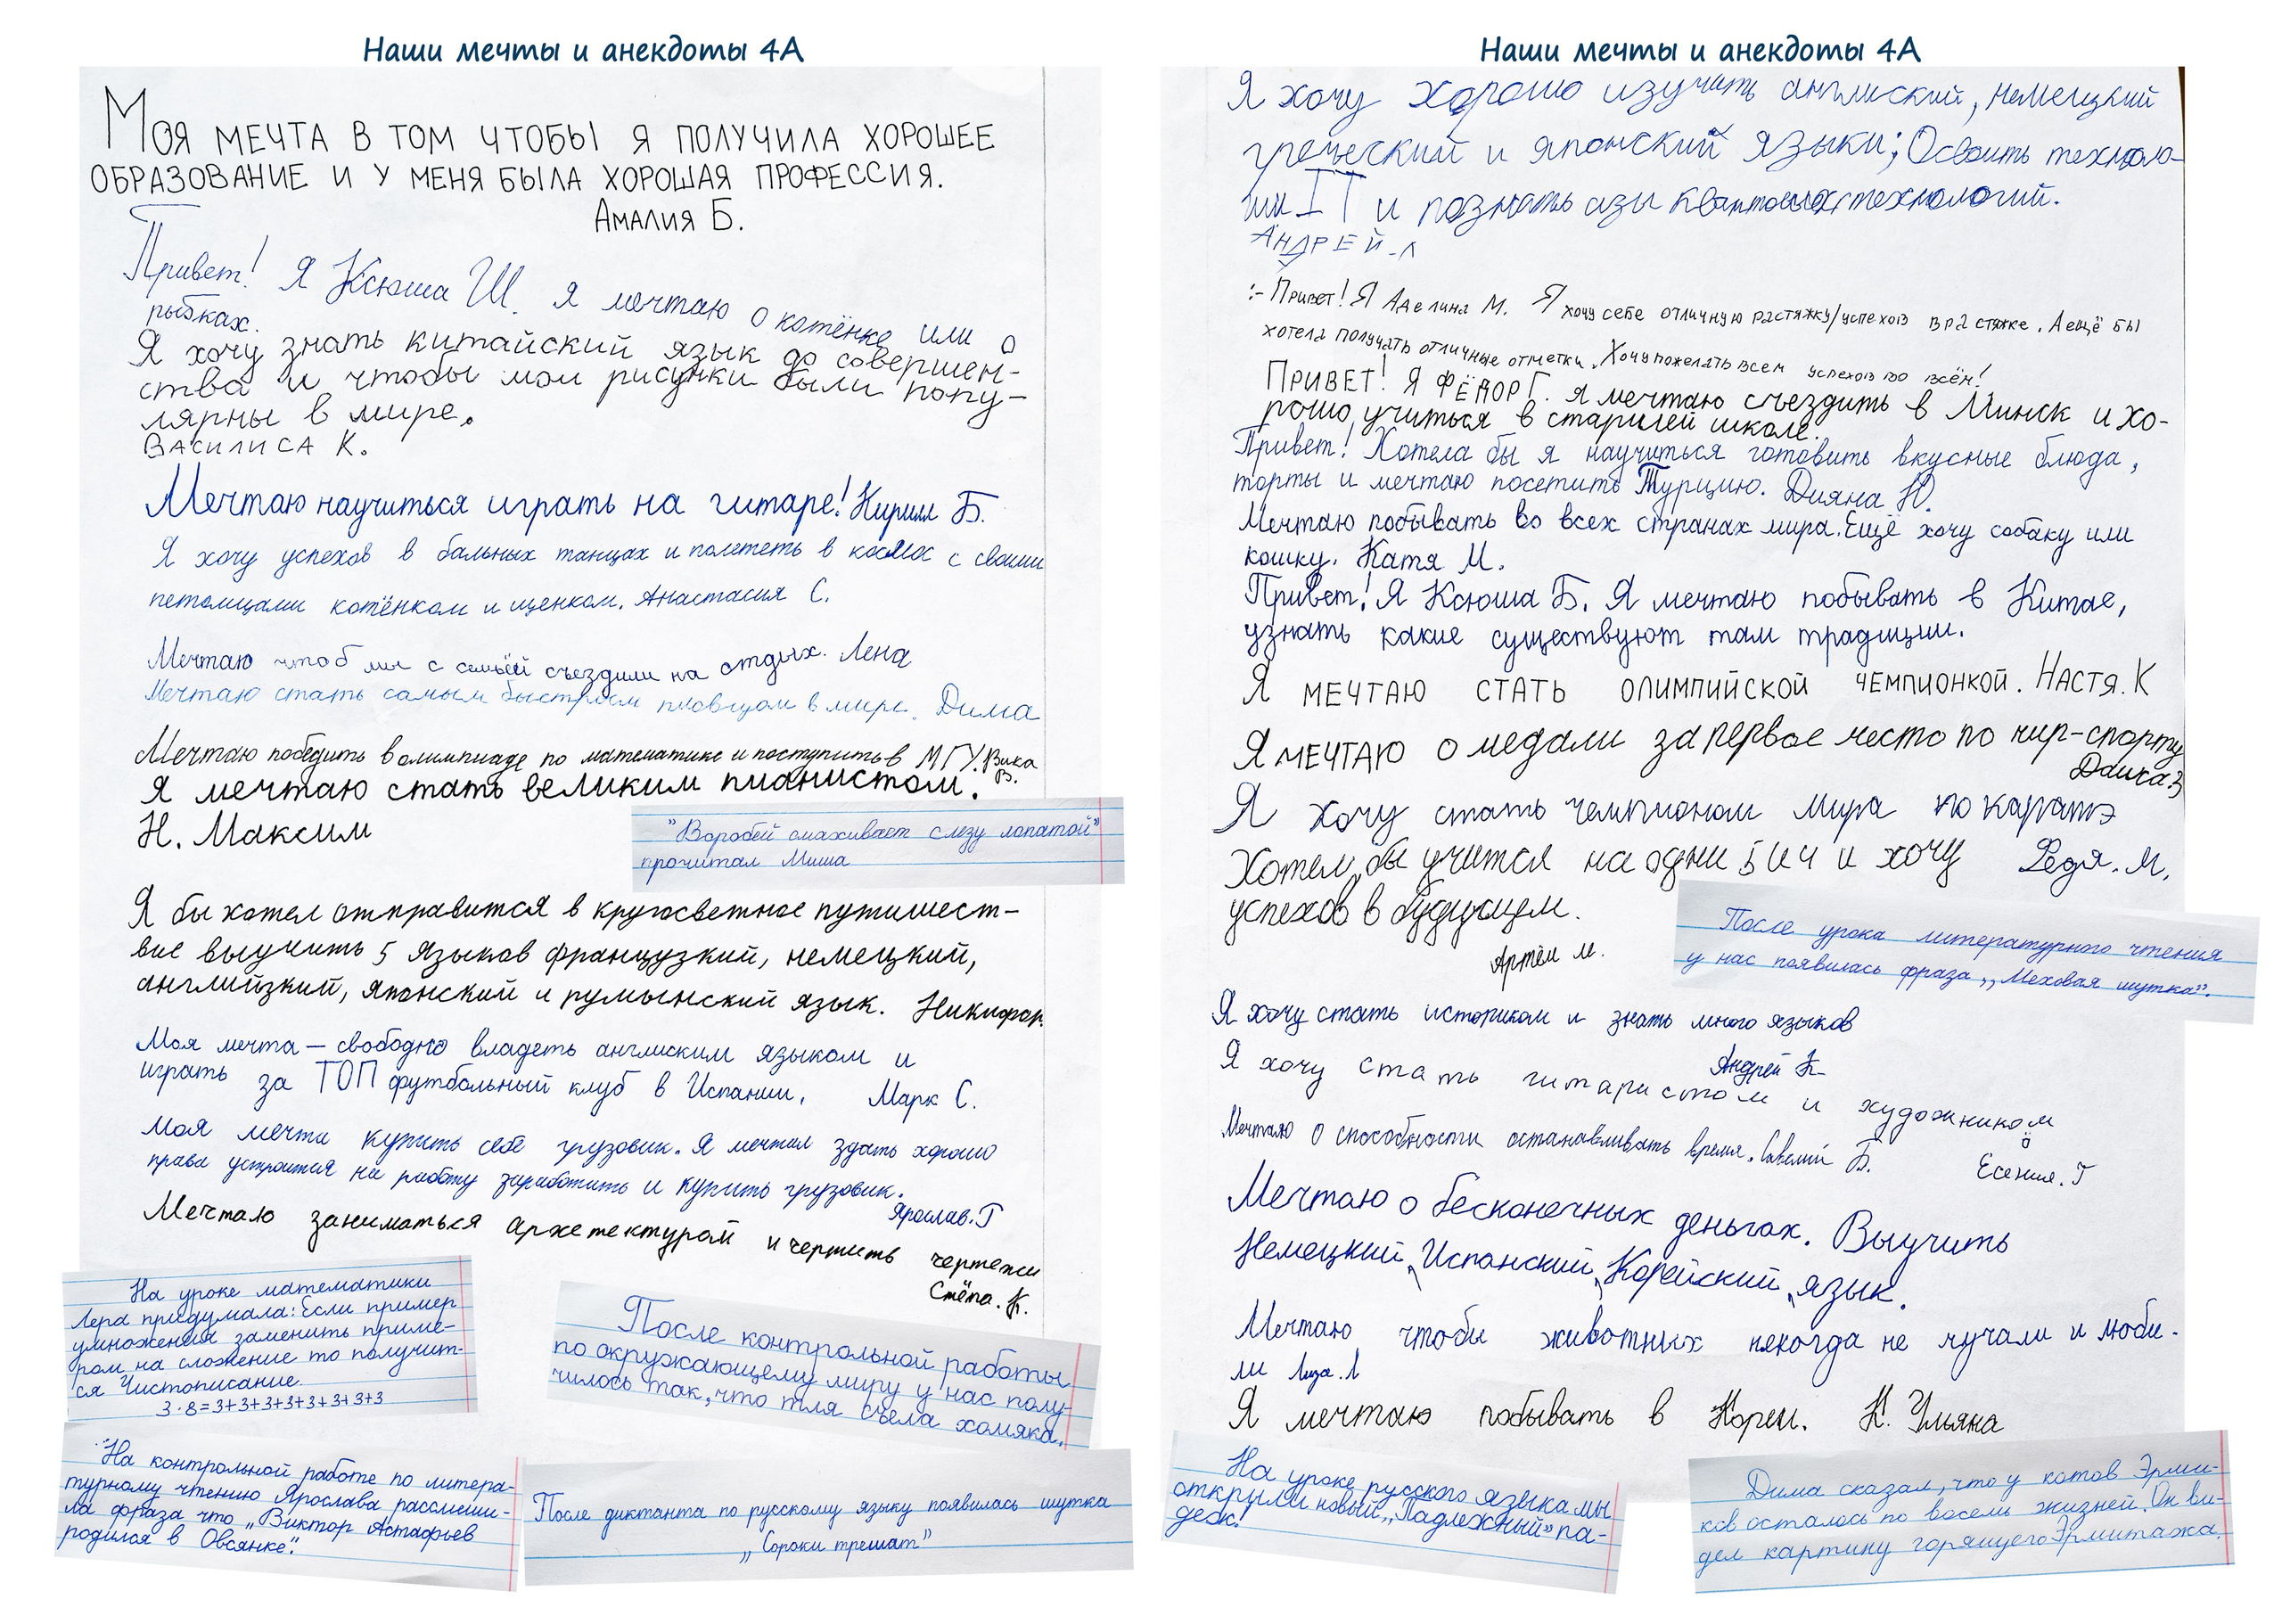 Наши мечты и анекдоты 4А
Моя мечта в том чтобы я получила хорошее
образование и у меня была хорошая профессия.
Амалия Б.
Привет! Я Ксюша Ш. я мечтаю о котёнке или о
рыбках.
Я хочу знать китайский язык до совершен-
ства и чтобы мои рисунки были попу-
лярны в мире.
Василиса К.
Мечтаю научиться играть на гитаре! Кирилл Б.
Я хочу успехов в бальных танцах и полететь в космос с своими
петомцами котёнком и щенком. Анастасия С.
Мечтаю чтоб мы с семьёй съездили на отдых. Лена
Мечтаю стать самым быстрым пловцом в мире. Дима
Мечтаю победить в олимпиаде по математике и поступить в МГУ. Вика
В.
Я мечтаю стать великим пианистом.
Н. Максим
"Воробей смахивает слезу лопатой"
прочитал Миша
Я бы хотел отправится в кругосветное путишест-
вие выучить 5 языков французкий, немецкий,
английзкий, японский и румынский язык. Никифор.
Моя мечта — свободно владеть англиским языком и
играть за ТОП футбольный клуб в Испании. Марк С.
Моя мечта купить себе грузовик. Я мечтал здать хорошо
права устроится на работу заработить и купить грузовик.
Ярослав.Г
Мечтаю заниматься архетектурой и чертить чертежи
Стёпа. К.
На уроке математики
Лера придумала: Если пример
умножения заменить приме-
ром на сложение то получит-
ся Чистописание.
3·8=3+3+3+3+3+3+3+3
После контрольной работы
по окружающему миру у нас полу-
чилось так, что тля съела хомяка.
"На контрольной работе по литера-
турному чтению Ярослава рассмеши-
ла фраза что „Виктор Астафьев
родился в Овсянке".
После диктанта по русскому языку появилась шутка
„Сороки трещат"
Наши мечты и анекдоты 4А
Я хочу хорошо изучить англиский, немецкий
греческий и японский языки; Освоить техноло-
гии IT и познать азы квантовых технологий.
Андрей-Л
:- Привет! Я Аделина М. Я хочу себе отличную растяжку/успехов в растяжке. А ещё бы
хотела получать отличные отметки. Хочу пожелать всем успехов во всём!
Привет! Я Фёдор Г. я мечтаю съездить в Минск и хо-
рошо учиться в старшей школе.
Привет! Хотела бы я научиться готовить вкусные блюда,
торты и мечтаю посетить Турцию. Дияна Ю.
Мечтаю побывать во всех странах мира. Ещё хочу собаку или
кошку. Катя М.
Привет! Я Ксюша Б. Я мечтаю побывать в Китае,
узнать какие существуют там традиции.
Я мечтаю стать олимпийской чемпионкой. Настя.К
Я мечтаю о медали за первое место по чир-спорту
Я хочу стать чемпионом мира по каратэ
Федя. М.
Хотел бы учится на одни 5 и 4 и хочу
успехов в будующем.
Артём М.
После урока литературного чтения
у нас появилась фраза „Меховая шутка".
Я хочу стать историком и знать много языков
Андрей К.
Я хочу стать гитаристом и художником
Есения.Г
Мечтаю о способности останавливать время. Савелий Б.
Мечтаю о бесконечных деньгах. Выучить
Немецкий, Испанский, Корейский язык.
Мечтаю чтобы животных некогда не мучали и люби-
ли Лиза.Л
Я мечтаю побывать в Кореи. К. Ульяна
На уроке русского языка мы
открыли новый „Падлежный" па-
деж!
Дима сказал, что у котов Эрми-
ков осталось по восемь жизней. Он ви-
дел картину горящего Эрмитажа.